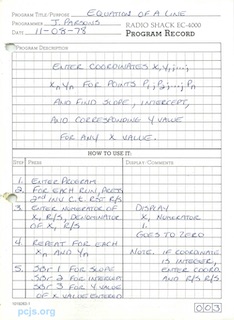 PROGRAM TITLE/PURPOSE EQUATION OF A LINE
PROGRAMMER J. PARSONS RADIO SHACK EC-4000
DATE 11-08-78 PROGRAM RECORD
PROGRAM DESCRIPTION
ENTER COORDINATES X,Y,;...;
XnYn FOR POINTS P1;P2;...;Pn
AND FIND SLOPE, INTERCEPT,
AND CORRESPONDING Y VALUE
FOR ANY X VALUE.
HOW TO USE IT:
STEP PRESS DISPLAY/COMMENTS
1. ENTER PROGRAM
2. FOR EACH RUN, PRESS
2nd INV C.t RST R/S
3. ENTER NUMERATOR OF DISPLAY
X, R/S, DENOMINATOR X, NUMERATOR
OF X, R/S 1
GOES TO ZERO
4. REPEAT FOR EACH
Xn AND Yn NOTE. IF COORDINATE
IS INTEGER,
5. SBR 1 FOR SLOPE ENTER COORD.
SBR 2 FOR INTERCEPT AND R/S R/S
SBR 3 FOR Y VALUE
OF X VALUE ENTERED
pcjs.org
003